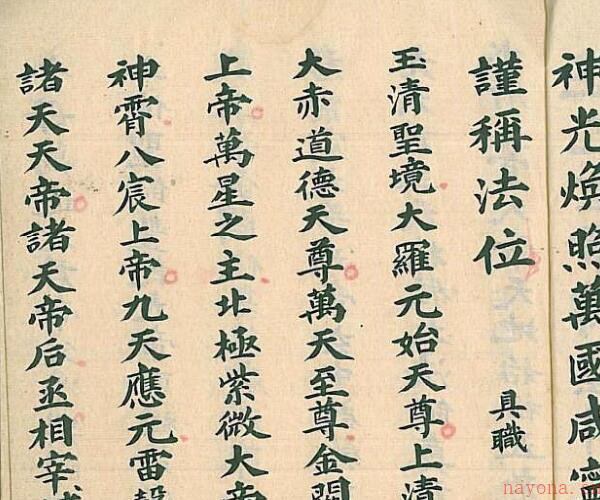 神光煥照萬國咸寧
謹稱法位 具職
玉清聖境大羅元始天尊上清
大赤道德天尊萬天至尊金闕
上帝萬星之主北極紫微大帝
神霄八宸上帝九天應元雷聲
諸天天帝諸天帝后丞相宰
nayona.